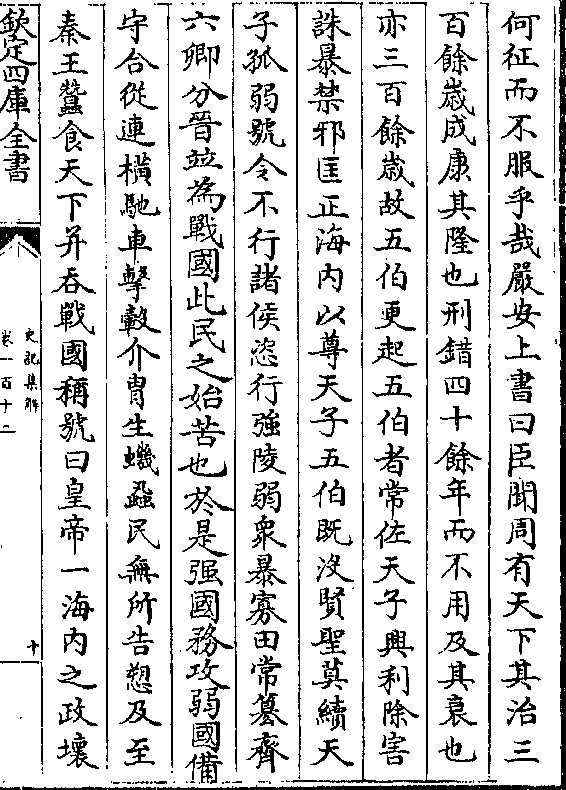 何征而不服乎哉嚴安上書曰臣聞周有天下其治三
百餘歲成康其隆也刑錯四十餘年而不用及其衰也
亦三百餘歲故五伯更起五伯者常佐天子興利除害
誅暴禁邪匡正海内以尊天子五伯既没賢聖莫續天
子孤弱號令不行諸侯恣行強陵弱衆暴寡田常簒齊
六卿分晉並為戰國此民之始苦也於是强國務攻弱國備
守合從連橫馳車擊轂介冑生蟣蝨民無所告愬及至
秦王蠶食天下并吞戰國稱號曰皇帝一海内之政壞
欽定四庫全書
史記集解
卷一百十二
十